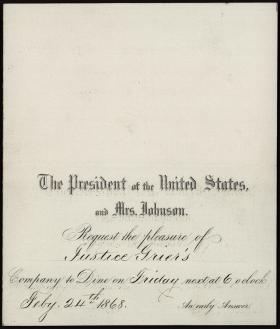 The President of the United States,
and Mrs. Johnson.
Request the pleasure of
Justice Grier's
Company to Dine on Friday next at 6 o'clock
Feby. 24th 1868. An early Answer.